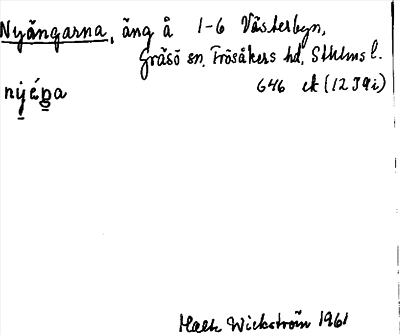 Nyängarna, äng å 1-6 Västerbyn,
Gräsö sn, Frösåkers hd, Sthlms l.
646 ek (12J9i)
nyéna
Wickström 1961